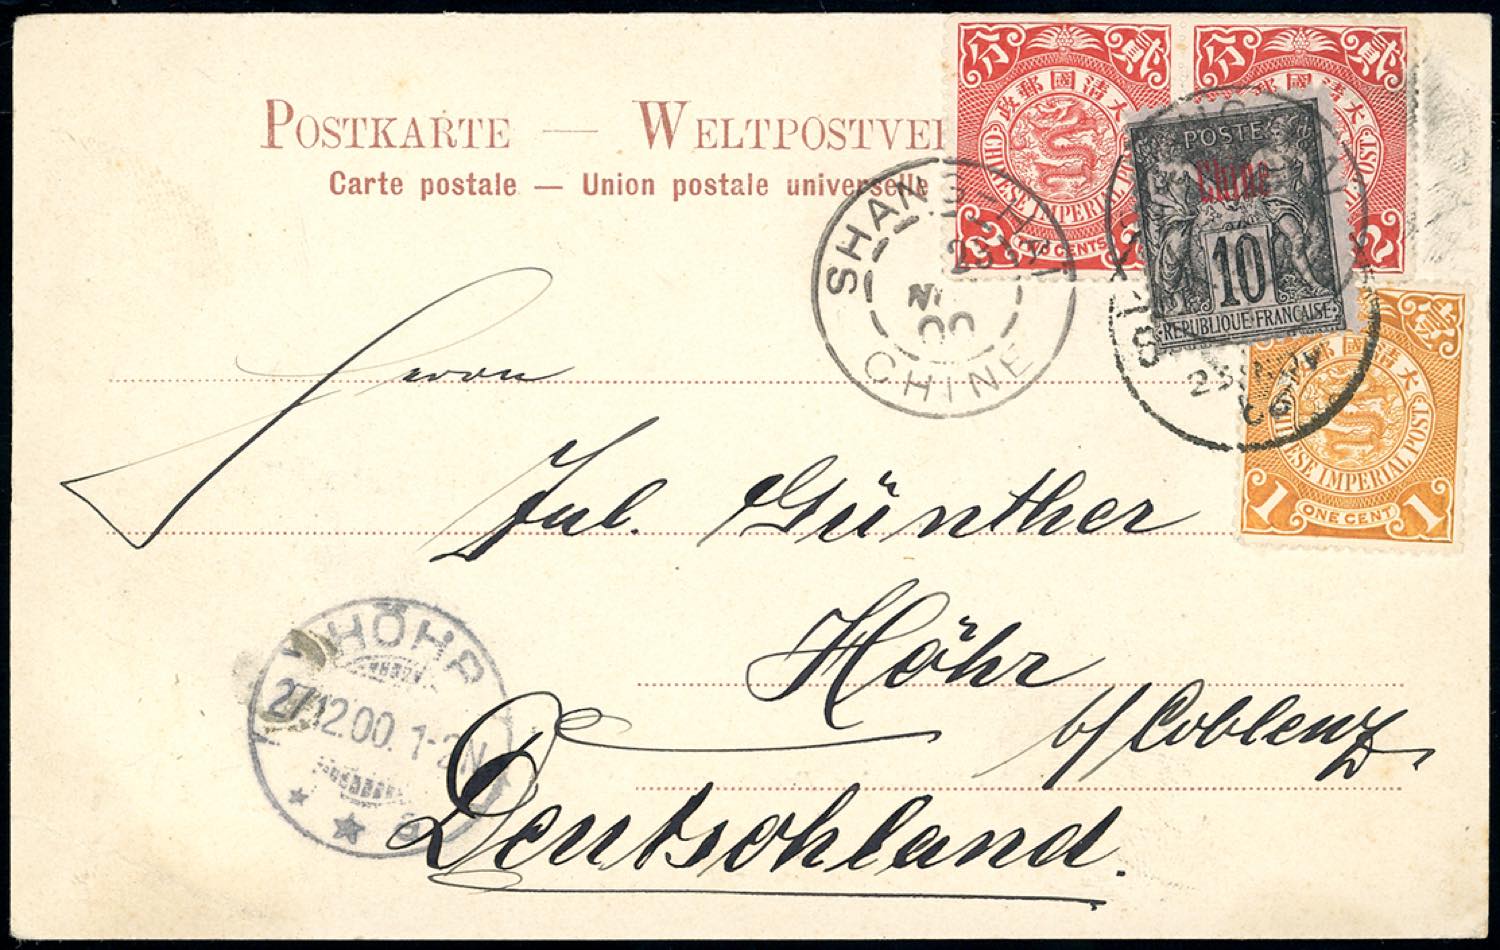 POSTKARTE — WELTPOSTVE
Carte postale — Union postale universelle
分 貳
大清國郵政
CHINESE IMPERIAL
2
TWO CENTS
分 貳
大清國郵政
POST
2
POSTE
Chine
10
REPUBLIQUE FRANÇAISE
大清國郵
ESE IMPERIAL POST
1 ONE CENT 1
SHANG-HAI
23
00
CHINE
Herrn
Jul. Günther
Höhr
b/Coblenz
Deutschland.
HÖHR
27.12.00. 1-2N